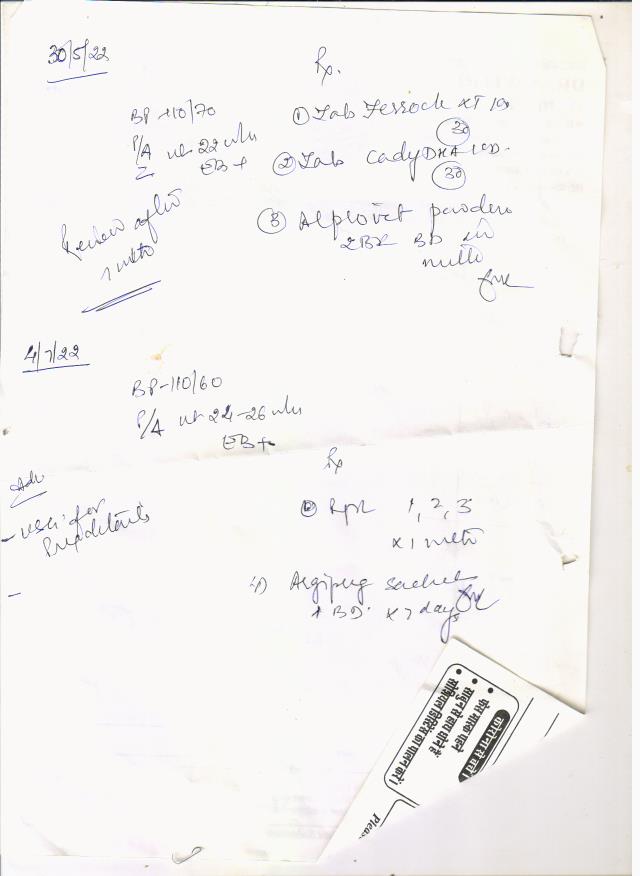 30/5/22
Rx.
BP 110/70
P/A ut 22 wks
EB+
① Tab Ferrock XT
30
② Tab Cady DHA
30
③ powder
BD in
milk
Review after
1 mth
4/7/22
BP-110/60
P/A ut 24-26 wks
EB+
Rx
Adv
- USG for
Rpt 1, 2, 3
x 1 mth
4) Argipreg sachet
1 BD. x 7 days
कोरोना से बचें।
• फेस मास्क पहने
• साबुन से हाथ धोते हैं
• सोशियल डिस्टेंस का पालन करें।
Pleas